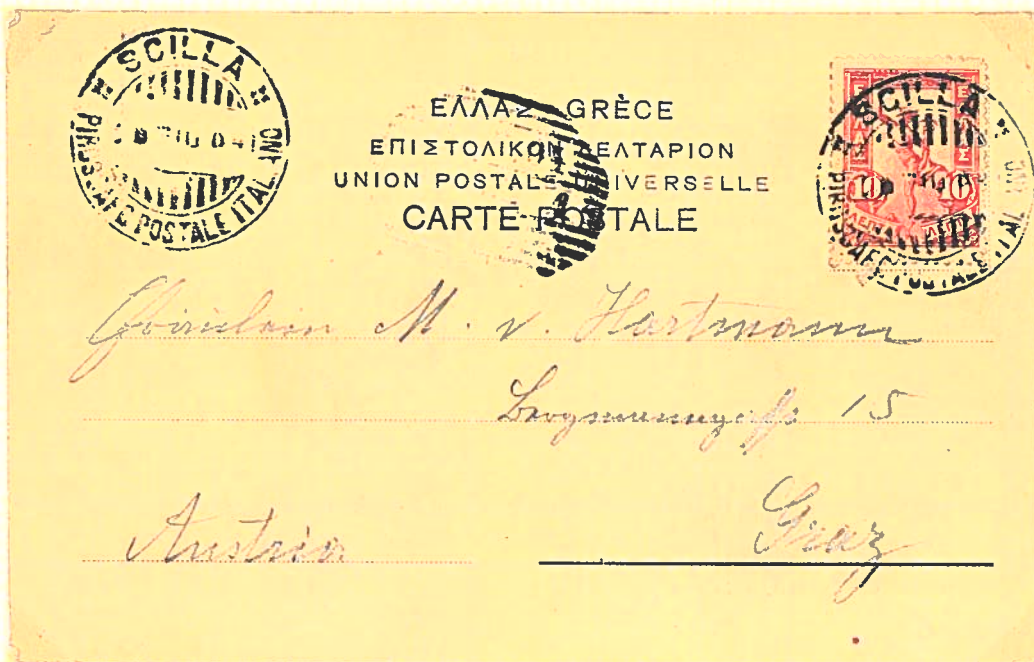 SCILLA
PIROSCAFO POSTALE ITALIANO
ΕΛΛΑΣ GRÈCE
ΕΠΙΣΤΟΛΙΚΟΝ ΔΕΛΤΑΡΙΟΝ
UNION POSTALE UNIVERSELLE
CARTE POSTALE
SCILLA
PIROSCAFO POSTALE ITAL
10
Fräulein M. v. Hartmann
Bergmanngasse 15
Austria
Graz